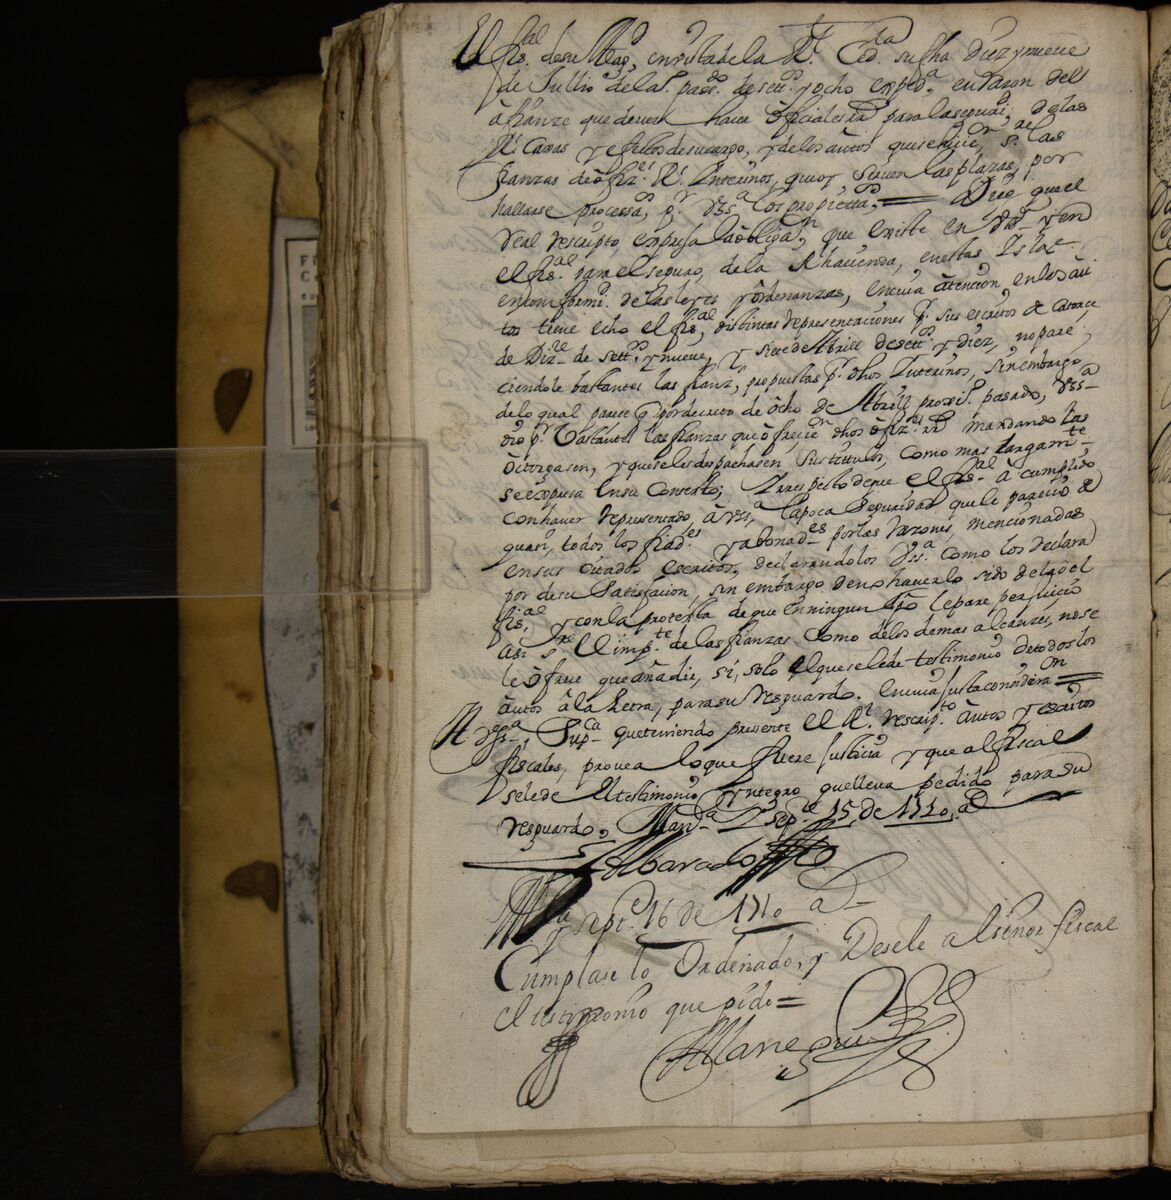 El fis.al de su Mag.d, en vista de la R.l Ced.la su fha Diez y nueve
de Jullio de la S. pas.do de sett.os y ocho exped.a en razon del
àfianze que deven hacer òficiales R.s para la segurid.d de las
R.s Caxas y efectos de su cargo, y de los àutos que sre las
fianzas de òfiz.es R.s Interinos, que oy sirven las plazas, por
hallarse processa.os p.r VSS.a los propietta.os = Dice que el
Real rescripto, expresa la òbligaz.on que existe en
el fis.al para el seguro, de la R hacienda, en estas Islas
en conformi.d de las leyes y òrdenanzas, en cuia àtencion en los àu
tos tiene echo el fis.al distintas representaciones p.r sus escritos de Catorce
de Diz.re de sett.os y nueve, y siete de Abrill de sett.os y diez, no pare
ciendole bastantes las fianz.s propuestas p.r dhos Interinos, sin embargo
de lo qual parece q por decreto de òcho de Abrill proxi.o pasado, VSS.a
dio p.r bastantes las fianzas que òfrecie.on dhos òfiz.es R.s mandando las
òtorgasen, y que se les despachasen sus titulos, como mas largam.te
se expresa en su Contesto; Y respecto de que el fis.al à cumplido
con haver representado, à VSS.a la poca seguridad que le parecio de
quasi todos los fiad.es y abonad.es por las razones, mencionadas
en sus citados escritos, declarandolos VSS.a como los declara
por de su Satisfacion, sin embargo de no haverlo sido de la del
fis.al, y con la protexta de que en ningun tpo le pare perjuicio
asi sre el imp.te de las fianzas como de los demas alcanzes, no se
le òfrece que añadir, si, solo el que se le de testimonio de todos los
àutos à la letra, para su resguardo. En cuia justa consideraz.on =
A VSS.a Sup.ca que teniendo presente el R.l rescrip.to àutos y escritos
fiscales, provea lo que fuere justicia y que al fiscal
se le de el testimonio, yntegro que lleva pedido para su
resguardo, Man.a Y Sep.re 15 de 1710 a.s
Albarado
M.la y Sept.e 16 de 1710 a.s
Cumplase lo Ordenado, y Desele al señor fiscal
el testimonio que pide =